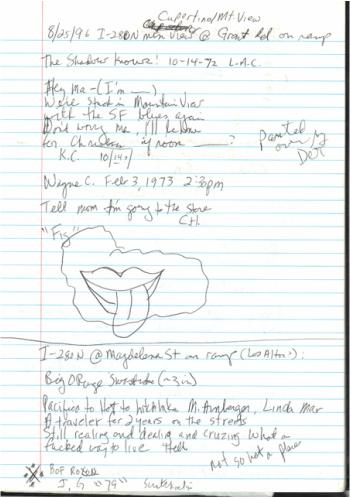 Cupertino/Mt. View
8/25/96 I-280N mtn View @ Grant Rd on ramp
The Shadow Knows! 10-14-72 L.A.C.
Hey Ma - (I'm ___)
We're stuck in Mountain View
with the SF blues again
Don't worry Ma, I'll be home
for Christmas if room ___?
painted over by
K.C. 10/14
Wayne C. Feb 3, 1973 2:30pm
Tell mom I'm going to the store
C.H.
"Fig"
I-280N @ Magdelena St on ramp (Los Altos):
Big Orange Swastika (~3in)
Pacifica to Hot to Linda Mar
A traveler for 2 years on the streets
Still realing and dealing and cruzing what a
fucked way to live
not so hot a place
J.G "79" Swastika